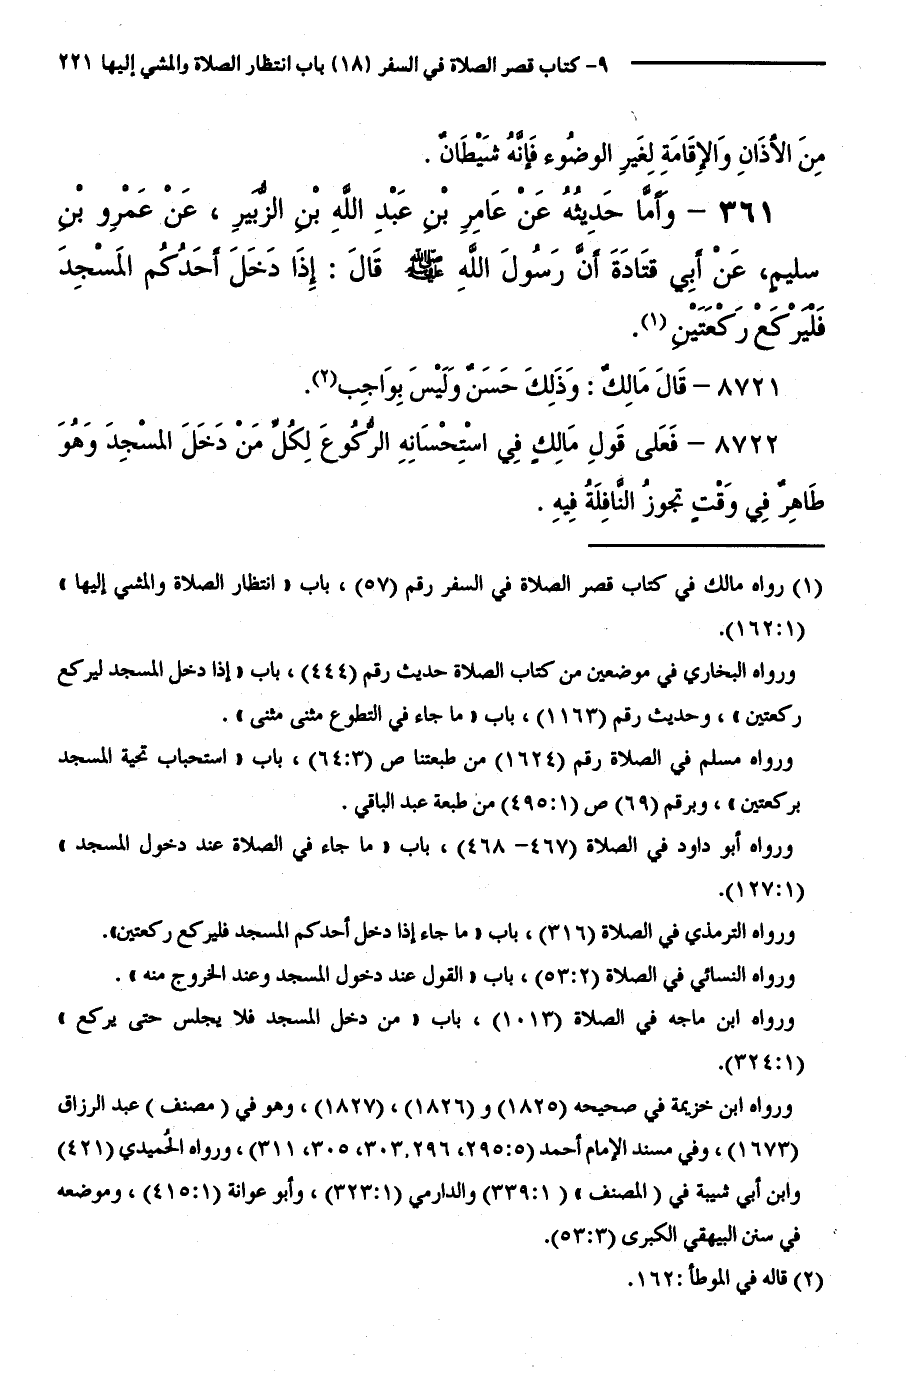 ٩- كتاب قصر الصلاة في السفر (١٨) باب انتظار الصلاة والمشي إليها ٢٢١
مِنَ الأَذَانِ وَالإِقَامَةِ لِغَيرِ الوضُوء فَإِنَّهُ شَيْطَانٌ .
٣٦١ – وَأَمَّا حَدِيثُهُ عَنْ عَامِرِ بْنِ عَبْدِ اللَّهِ بْنِ الزُّبَيرِ ، عَنْ عَمْرِو بْنِ
سليمٍ، عَنْ أَبِي قتَادَةَ أَنَّ رَسُولَ اللَّهِ ﷺ قَالَ : إِذَا دَخَلَ أَحَدُكُم المَسْجِدَ
فَلْيَرْكَعْ رَكْعَتَيْنِ (١).
٨٧٢١ – قَالَ مَالِكٌ : وَذَلِكَ حَسَنٌ وَلَيْسَ بِوَاجِب(٢).
٨٧٢٢ – فَعَلى قَولِ مَالِكٍ فِي اسْتِحْسَانِهِ الرُّكُوعَ لِكُلِّ مَنْ دَخَلَ المسْجِدَ وَهُوَ
طَاهِرٌ فِي وَقْتٍ تجوزُ النَّافِلَةُ فِيهِ .
(١) رواه مالك في كتاب قصر الصلاة في السفر رقم (٥٧) ، باب « انتظار الصلاة والمشي إليها »
(١٦٢:١).
ورواه البخاري في موضعين من كتاب الصلاة حديث رقم (٤٤٤) ، باب « إذا دخل المسجد ليركع
ركعتين » ، وحديث رقم (١١٦٣) ، باب « ما جاء في التطوع مثنى مثنى » .
ورواه مسلم في الصلاة رقم (١٦٢٤) من طبعتنا ص (٦٤:٣) ، باب « استحباب تحية المسجد
بركعتين » ، وبرقم (٦٩) ص (٤٩٥:١) من طبعة عبد الباقي .
ورواه أبو داود في الصلاة (٤٦٧- ٤٦٨) ، باب « ما جاء في الصلاة عند دخول المسجد »
(١٢٧:١).
ورواه الترمذي في الصلاة (٣١٦) ، باب « ما جاء إذا دخل أحدكم المسجد فليركع ركعتين».
ورواه النسائي في الصلاة (٥٣:٢) ، باب « القول عند دخول المسجد وعند الخروج منه » .
ورواه ابن ماجه في الصلاة (١٠١٣) ، باب « من دخل المسجد فلا يجلس حتى يركع »
(٣٢٤:١).
ورواه ابن خزيمة في صحيحه (١٨٢٥) و (١٨٢٦) ، (١٨٢٧) ، وهو في ( مصنف ) عبد الرزاق
(١٦٧٣) ، وفي مسند الإمام أحمد (٢٩٥:٥، ٣٠٣,٢٩٦، ٣٠٥، ٣١١) ، ورواه الحُميدي (٤٢١)
وابن أبي شيبة في ( المصنف » ( ٣٣٩:١) والدارمي (٣٢٣:١) ، وأبو عوانة (٤١٥:١) ، وموضعه
في سنن البيهقي الكبرى (٥٣:٣).
(٢) قاله في الموطأ :١٦٢.